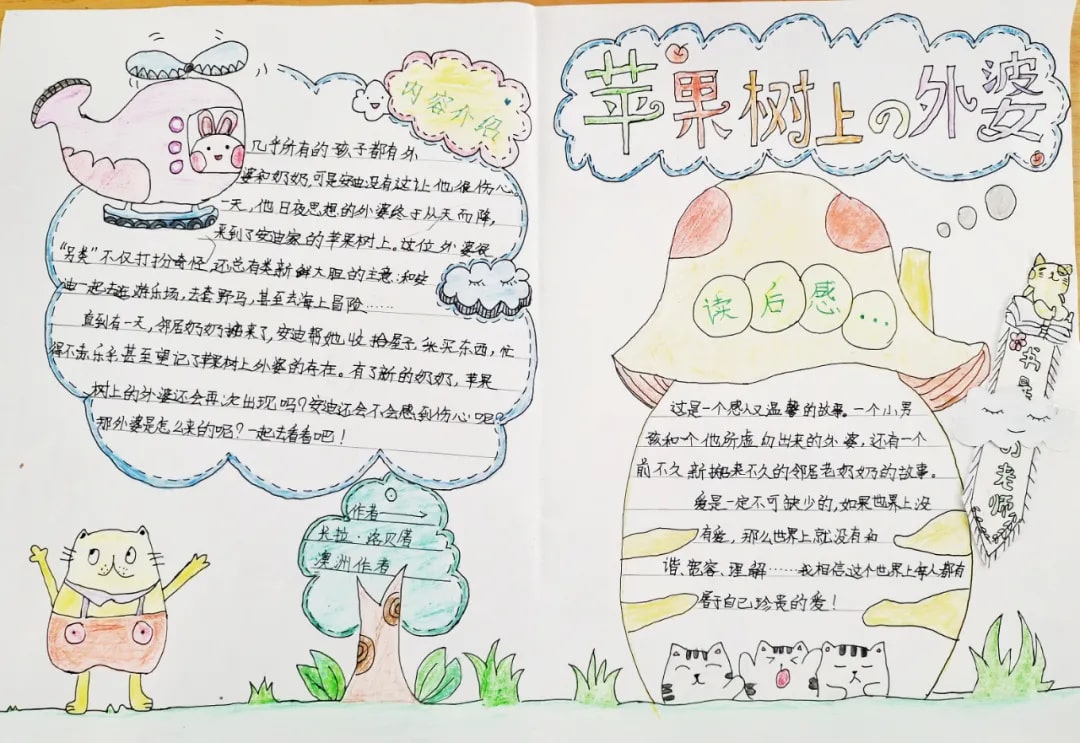 苹果树上の外婆
内容介绍
几乎所有的孩子都有外
婆和奶奶,可是安迪没有这让他很伤心
一天,他日夜思想的外婆终于从天而降,
来到了安迪家的苹果树上。这位外婆很
“另类”不仅打扮奇怪,还总有类新鲜大胆的主意:和安
迪一起去逛游乐场,去套野马,甚至去海上冒险……
直到有一天,邻居奶奶搬来了,安迪帮她收拾屋子 买东西,忙
得不亦乐乎甚至望记了苹果树上外婆的存在。有了新的奶奶,苹果
树上的外婆还会再次出现吗?安迪还会不会感到伤心呢?
那外婆是怎么来的呢?一起去看看吧!
作者
·洛贝
澳洲作者
读后感…
这是一个感人又温馨的故事。一个小男
孩和个他所虚勾出来的外婆,还有一个
前不久新搬来不久的邻居老奶奶的故事。
爱是一定不可缺少的,如果世界上没
有爱,那么世界上就没有和
谐、宽容、理解……我相信这个世界上每人都有
属于自己珍贵的爱!
书是
的老师